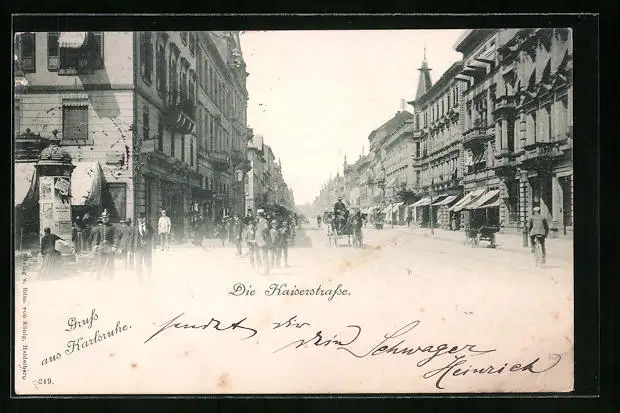 Die Kaiserstraße.
Gruß
aus Karlsruhe.
sendet dir dein Schwager
Heinrich
Verlag v. Edm. von König, Heidelberg
249.